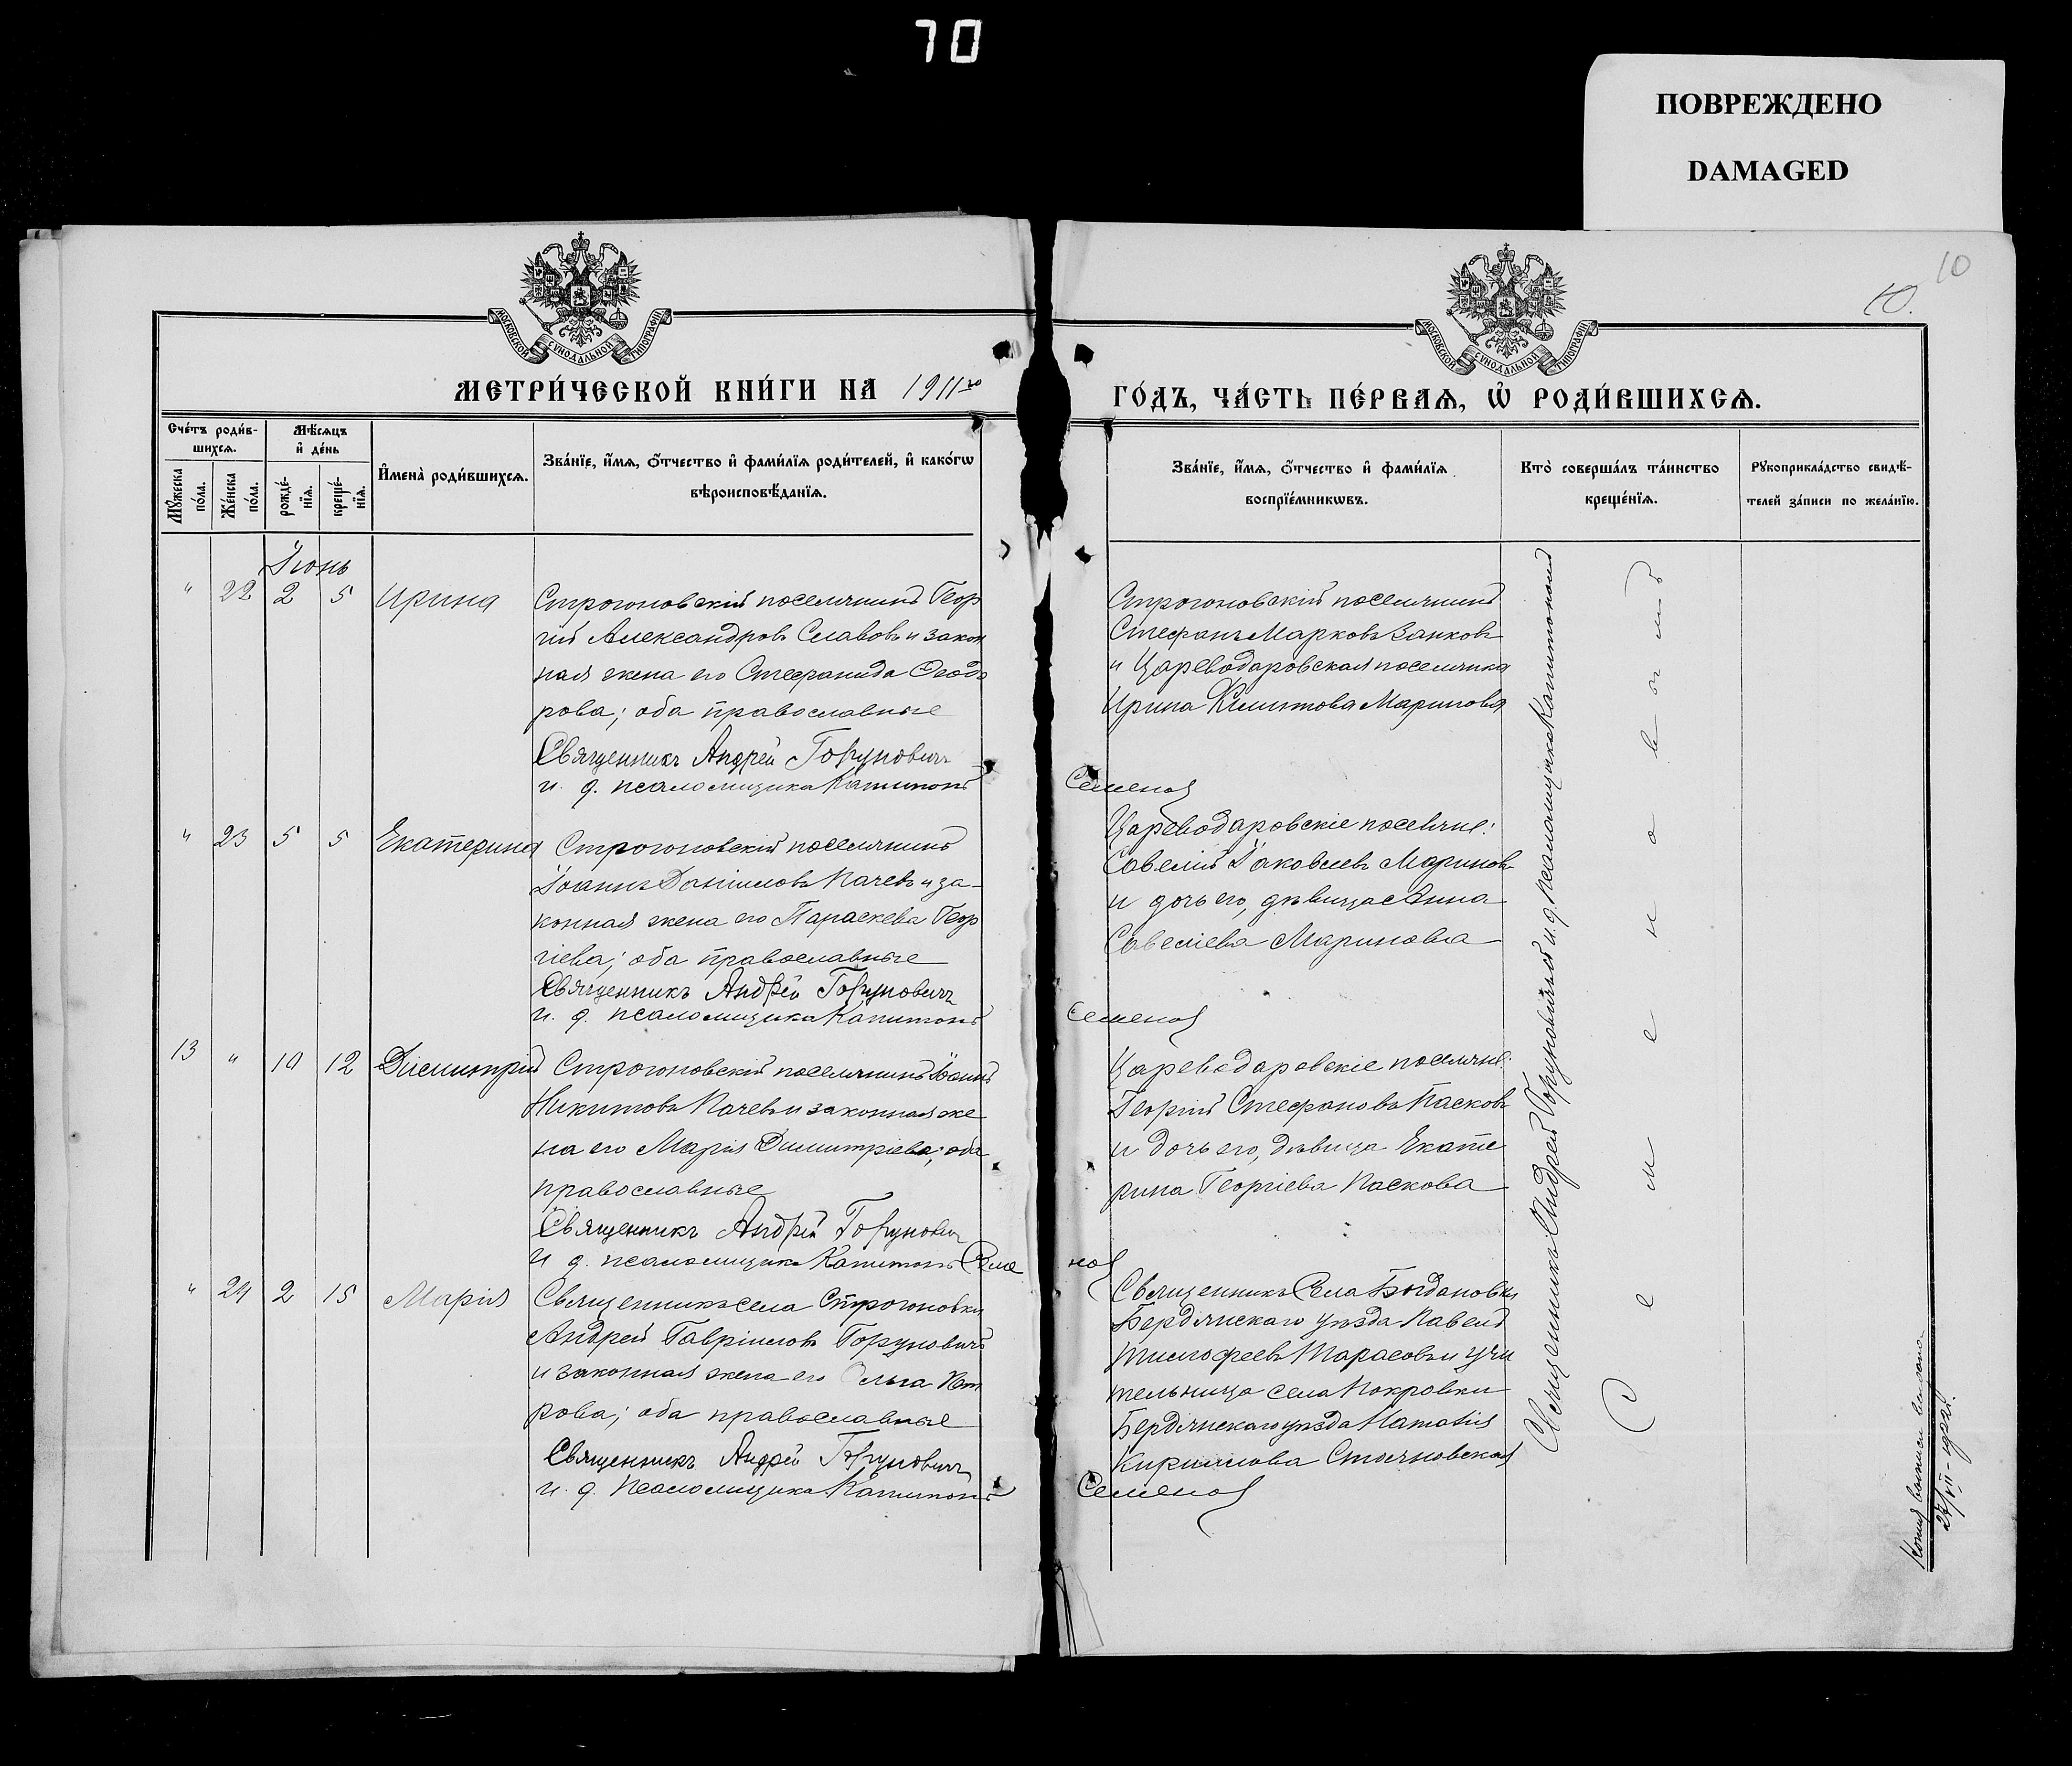 70
ПОВРЕЖДЕНО
DAMAGED
10
10.
МОСКОВСКОЙ СѴНОДАЛЬНОЙ ТИПОГРАФІИ
МОСКОВСКОЙ СѴНОДАЛЬНОЙ ТИПОГРАФІИ
МЕТРИ́ЧЕСКОЙ КНИ́ГИ НА 1911го
ГО́ДЪ, ЧА́СТЬ ПЕ́РВАѦ, Ѽ РОДИ́ВШИХСѦ.
Сче́тъ роди́в-
шихсѧ.
Мѣ́сѧцъ
и҆ де́нь
Мꙋ́жеска по́ла.
Же́нска по́ла.
рожде́-
нїѧ.
креще́-
нїѧ.
И҆мена̀ роди́вшихсѧ.
Зва́нїе, и҆́мѧ, ѻ҆́тчество и҆ фами́лїѧ роди́телей, и҆ како́гѡ
вѣроисповѣ́данїѧ.
Зва́нїе, и҆́мѧ, ѻ҆́тчество и҆ фами́лїѧ
воспрїе́мникѡвъ.
Кто̀ соверша́лъ та́инство
креще́нїѧ.
Рꙋкоприкла́дство свидѣ́-
телей за́писи по жела́нїю.
Іюнь
" 22 2 5 Ирина
Строгоновскій поселянинъ Геор
гій Александровъ Славовъ и закон
ная жена его Стефанида Ѳеодо
рова; оба православные
Священникъ Андрей Горунович
и. д. псаломщика Капитонъ Семенов
Строгоновскій поселянинъ
Стефанъ Марковъ Занковъ
и Цареводаровская поселянка
Ирина Климтова Маринова
" 23 5 5 Екатерина
Строгоновскій поселянинъ
Іоаннъ Даніиловъ Качевъ и за-
конная жена его Параскева Геор
гіева; оба православные
Священникъ Андрей Горунович
и. д. псаломщика Капитонъ Семенов
Цареводаровскіе поселяне:
Савелій Іаковлевъ Мариновъ
и дочь его, дѣвица Анна
Савеліева Маринова
13 " 10 12 Димитрій
Строгоновскій поселянинъ Іоаннъ
Никитовъ Качевъ и законная же
на его Марія Димитріева; оба
православные
Священникъ Андрей Горунович
и д. псаломщика Капитонъ Семенов
Цареводаровскіе поселяне:
Георгій Стефановъ Пасковъ
и дочь его, дѣвица Екате
рина Георгіева Паскова
" 24 2 15 Марія
Священникъ села Строгоновки
Андрей Гавріиловъ Горуновичъ
и законная жена его Ольга Пет
рова; оба православные
Священникъ Андрей Горунович
и. д. псаломщика Капитонъ Семенов
Священникъ села Богдановки
Бердянскаго уѣзда Павелъ
Тимофеевъ Тарасовъ и учи
тельница села Покровки
Бердянскаго уѣзда Наталія
Кириллова Стояновская
Священникъ Андрей Горуновичъ и и. д. псаломщика Капитонъ
Семеновымъ
Копія выписи выдана